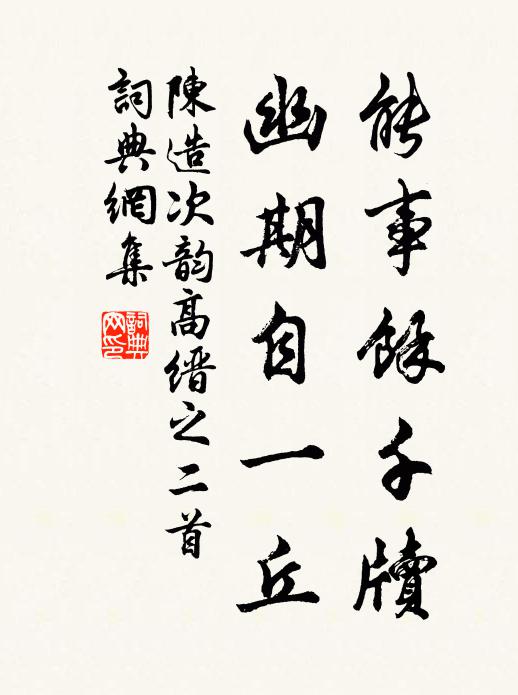 能事餘千牘
幽期自一丘
陳造次韵高缙之二首
詞典網集
詞典網印